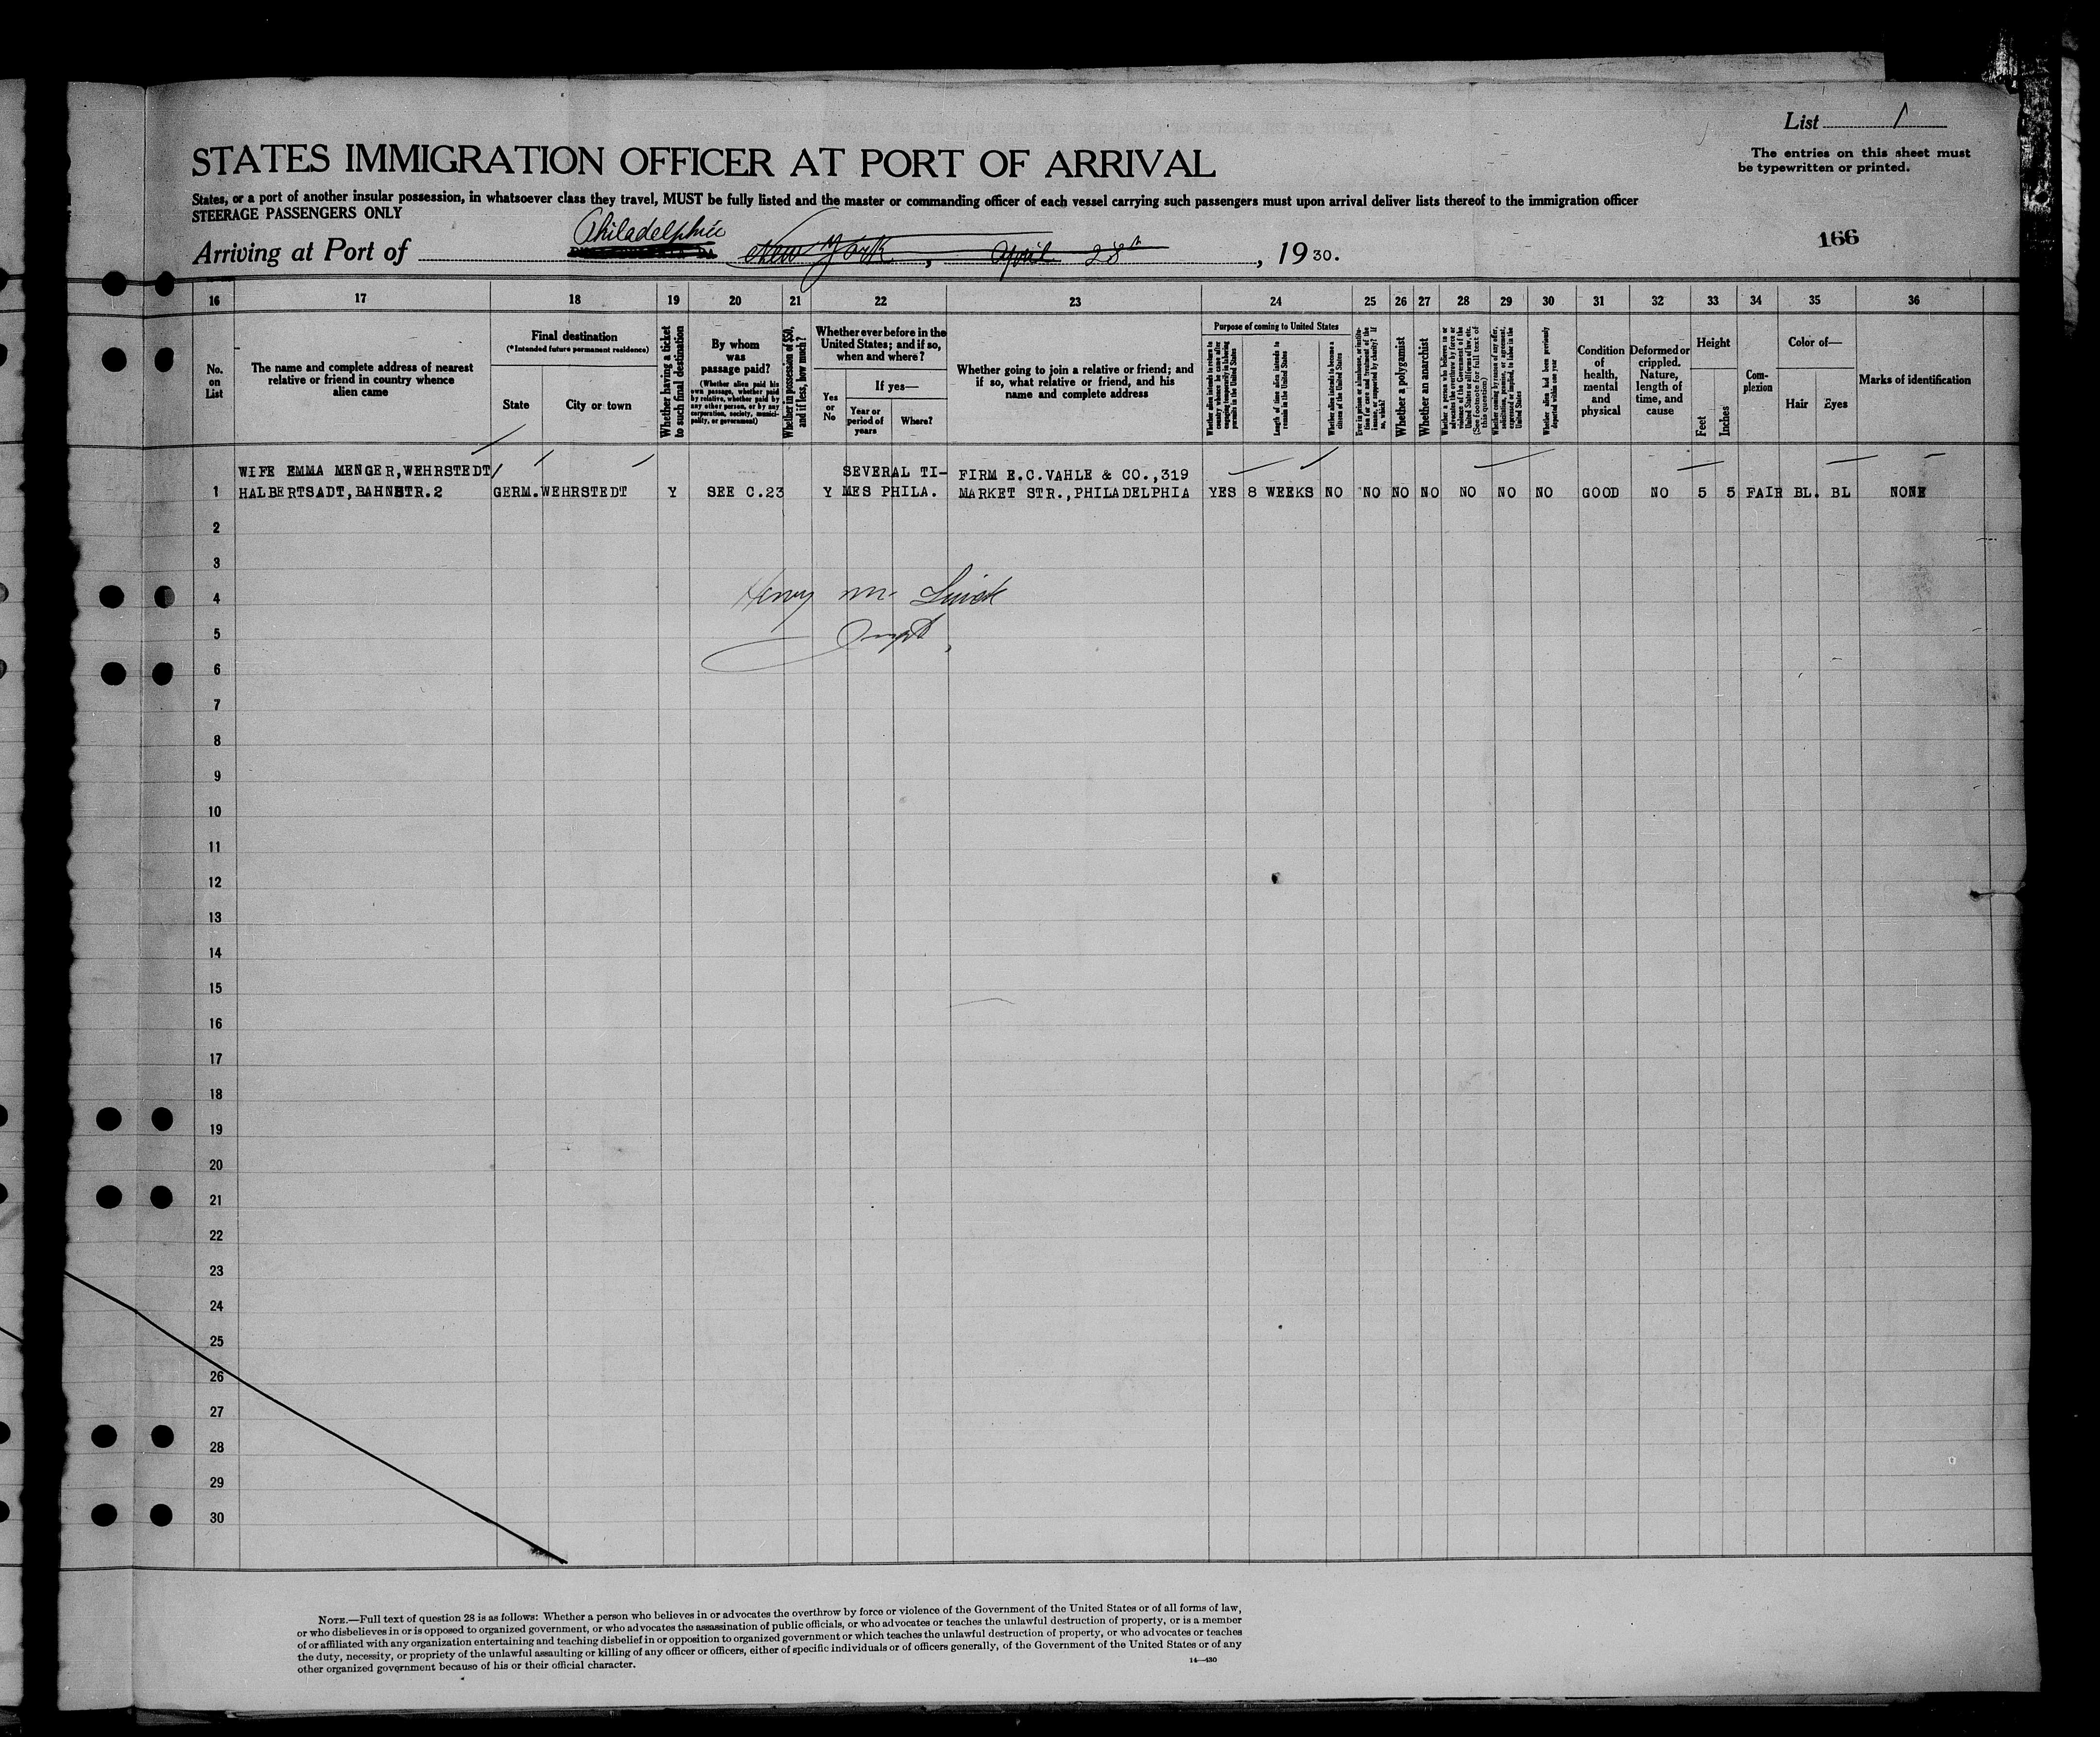 List 1
The entries on this sheet must
be typewritten or printed.
STATES IMMIGRATION OFFICER AT PORT OF ARRIVAL
States, or a port of another insular possession, in whatsoever class they travel, MUST be fully listed and the master or commanding officer of each vessel carrying such passengers must upon arrival deliver lists thereof to the immigration officer
STEERAGE PASSENGERS ONLY
166
Philadelphia
Arriving at Port of New York, April 28th, 1930.
16 17 18 19 20 21 22 23 24 25 26 27 28 29 30 31 32 33 34 35 36
No.
on
List
The name and complete address of nearest
relative or friend in country whence
alien came
Final destination
(*Intended future permanent residence)
State
City or town
Whether having a ticket
to such final destination
By whom
was
passage paid?
(Whether alien paid his
own passage, whether paid
by relative, whether paid by
any other person, or by any
corporation, society, munici-
pality, or government)
Whether in possession of $50,
and if less, how much?
Whether ever before in the
United States; and if so,
when and where?
Yes
or
No
If yes—
Year or
period of
years
Where?
Whether going to join a relative or friend; and
if so, what relative or friend, and his
name and complete address
Purpose of coming to United States
Whether alien intends to return to
country whence he came after
engaging temporarily in laboring
pursuits in the United States
Length of time alien intends to
remain in the United States
Whether alien intends to become a
citizen of the United States
Ever in prison or almshouse, or institu-
tion for care and treatment of the
insane, or supported by charity? If
so, which?
Whether a polygamist
Whether an anarchist
Whether a person who believes in or
advocates the overthrow by force or
violence of the Government of the
United States or all forms of law, etc.
(See footnote for full text of
this question)
Whether coming by reason of any offer,
solicitation, promise, or agreement,
expressed or implied, to labor in the
United States
Whether alien had been previously
deported within one year
Condition
of
health,
mental
and
physical
Deformed or
crippled.
Nature,
length of
time, and
cause
Height
Feet
Inches
Com-
plexion
Color of—
Hair
Eyes
Marks of identification
WIFE EMMA MENGER,WEHRSTEDT/ SEVERAL TI- FIRM E.C.VAHLE & CO.,319
1 HALBERTSADT,BAHNSTR.2 GERM.WEHRSTEDT Y SEE C.23 Y MES PHILA. MARKET STR.,PHILADELPHIA YES 8 WEEKS NO NO NO NO NO NO NO GOOD NO 5 5 FAIR BL. BL NONE
2
3
4 Henry M.
5
6
7
8
9
10
11
12
13
14
15
16
17
18
19
20
21
22
23
24
25
26
27
28
29
30
NOTE.—Full text of question 28 is as follows: Whether a person who believes in or advocates the overthrow by force or violence of the Government of the United States or of all forms of law,
or who disbelieves in or is opposed to organized government, or who advocates the assassination of public officials, or who advocates or teaches the unlawful destruction of property, or is a member
of or affiliated with any organization entertaining and teaching disbelief in or opposition to organized government or which teaches the unlawful destruction of property, or who advocates or teaches
the duty, necessity, or propriety of the unlawful assaulting or killing of any officer or officers, either of specific individuals or of officers generally, of the Government of the United States or of any
other organized government because of his or their official character.
14—430